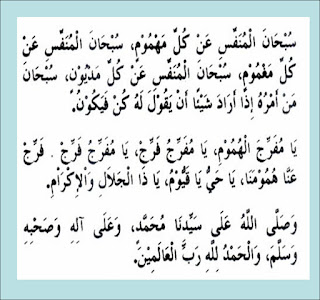 سُبْحَانَ الْمُنَفِّسِ عَنْ كُلِّ مَهْمُوْمٍ، سُبْحَانَ الْمُنَفِّسِ عَنْ
كُلِّ مَغْمُوْمٍ، سُبْحَانَ الْمُنَفِّسِ عَنْ كُلِّ مَدْيُوْنٍ، سُبْحَانَ
مَنْ أَمْرُهُ إِذَا أَرَادَ شَيْئًا أَنْ يَقُوْلَ لَهُ كُنْ فَيَكُوْنُ.
يَا مُفَرِّجَ الْهُمُوْمِ، يَا مُفَرِّجُ فَرِّجْ، يَا مُفَرِّجُ فَرِّجْ . فَرِّجْ
عَنَّا هُمُوْمَنَا، يَا حَيُّ يَا قَيُّوْمُ، يَا ذَا الْجَلَالِ وَالْإِكْرَامِ.
وَصَلَّى اللَّهُ عَلَى سَيِّدِنَا مُحَمَّد، وَعَلَى آلِهِ وَصَحْبِهِ
وَسَلَّمَ، وَالْحَمْدُ لِلَّهِ رَبِّ الْعَالَمِيْنَ.